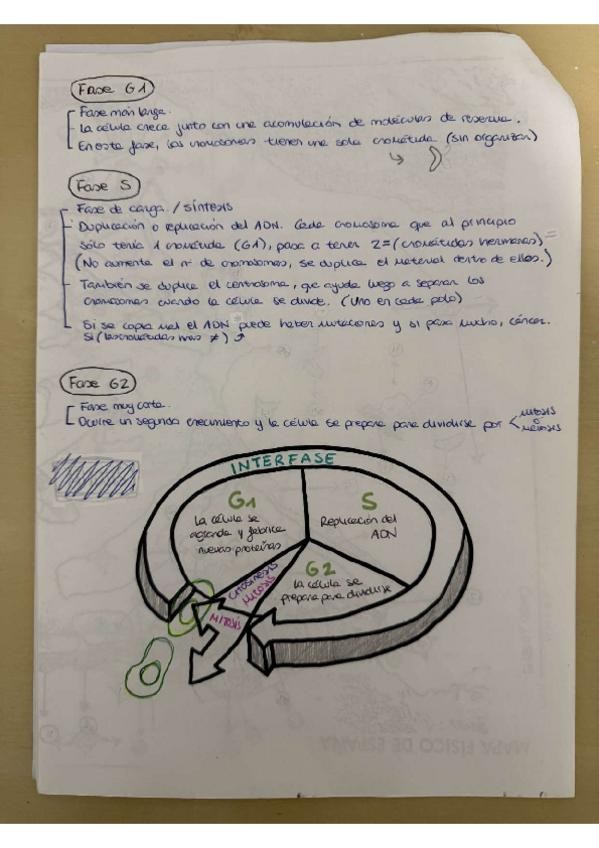 Fase G1
Fase más larga.
La célula crece junto con una acomulación de moléculas de reserva.
En esta fase, los cromosomas tienen una sola cromátida (sin organizar)
Fase S
Fase de carga / síntesis
Duplicación o replicación del ADN. Cada cromosoma que al principio
sólo tenía 1 cromátida (G1), pasa a tener 2 = (cromátidas hermanas) =
(No aumenta el nº de cromosomas, se duplica el material dentro de ellos.)
También se duplica el centrosoma, que ayuda luego a separar los
cromosomas cuando la célula se divide. (Uno en cada polo)
Si se copia mal el ADN puede haber mutaciones y si pasa mucho, cáncer.
Si (las cromátidas ≠)
Fase G2
Fase muy corta.
Ocurre un segundo crecimiento y la célula se prepara para dividirse por mitosis
o
meiosis
INTERFASE
G1
La célula se
agranda y fabrica
nuevas proteínas
S
Replicación del
ADN
G2
La célula se
prepara para dividirse
CITOSINESIS
MITOSIS
MITOSIS
MAPA FÍSICO DE ESPAÑA